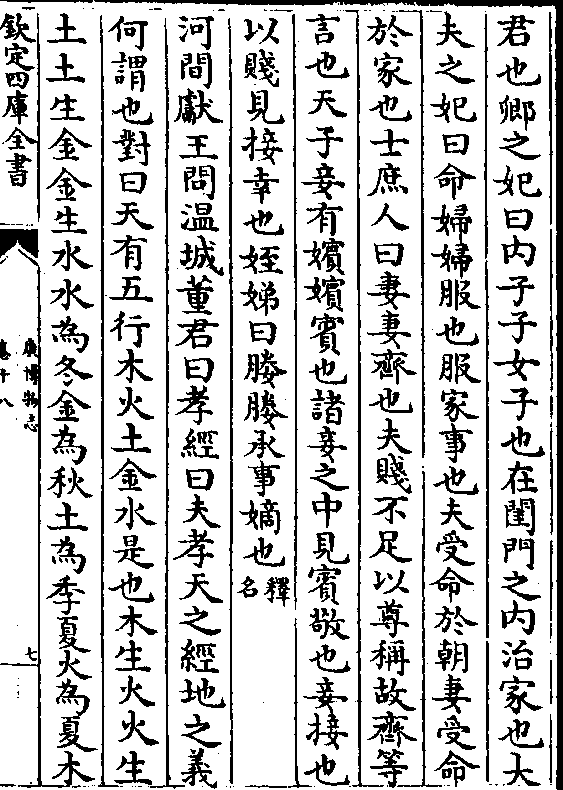 君也卿之妃曰内子子女子也在閨門之内治家也大
夫之妃曰命婦婦服也服家事也夫受命於朝妻受命
於家也士庶人曰妻妻齊也夫賤不足以尊稱故齊等
言也天子妾有嬪嬪賓也諸妾之中見賓敬也妾接也
以賤見接幸也姪娣曰媵媵承事嫡也釋名
河間獻王問温城董君曰孝經曰夫孝天之經地之義
何謂也對曰天有五行木火土金水是也木生火火生
土土生金金生水水為冬金為秋土為季夏火為夏木
欽定四庫全書
廣博物志
卷十八
七